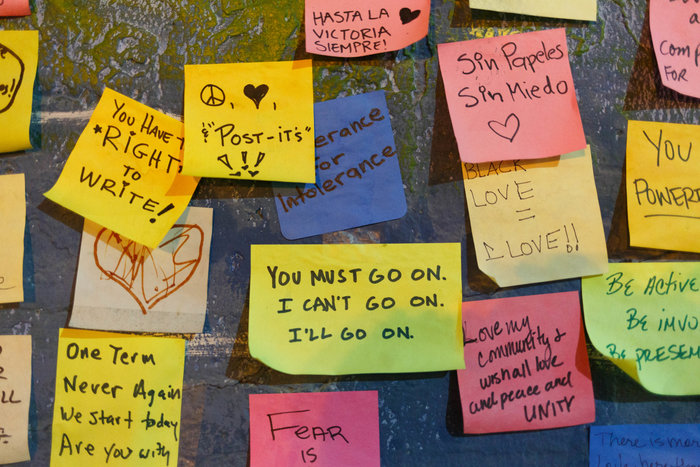 HASTA LA
VICTORIA
SIEMPRE!
& "POST-IT'S"
!!!
YOU HAVE
*RIGHT
TO
WRITE!
for
Intolerance
Sin Papeles
Sin Miedo
BLACK
LOVE
=
1 LOVE!!
FOR
YOU
YOU MUST GO ON.
I CAN'T GO ON.
I'LL GO ON.
Be Active
Be
Be
Love my
community &
wish all love
and peace and
UNITY
One Term
Never Again
We start today
Are you with
FEAR
IS
There is